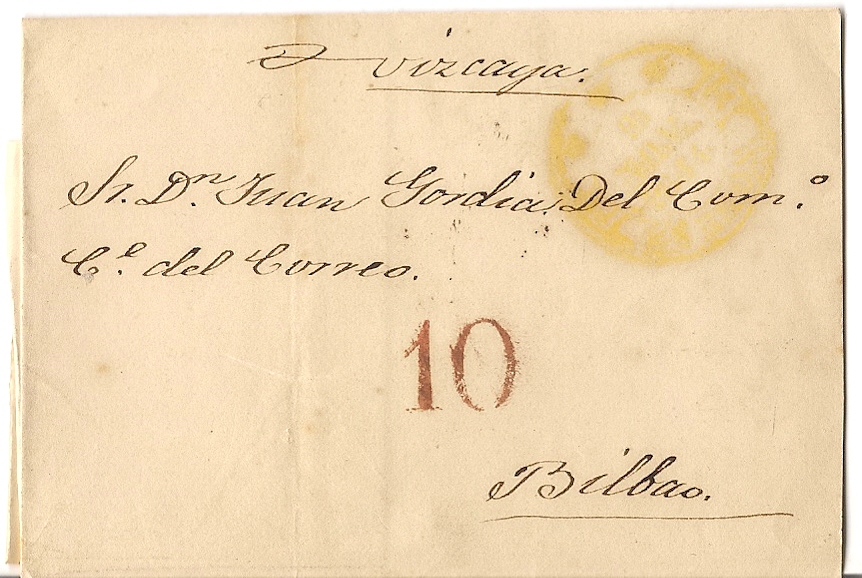 Vizcaya.
Sr. Dn. Juan Gordia Del Com.o
C.e del Correo.
10
Bilbao.